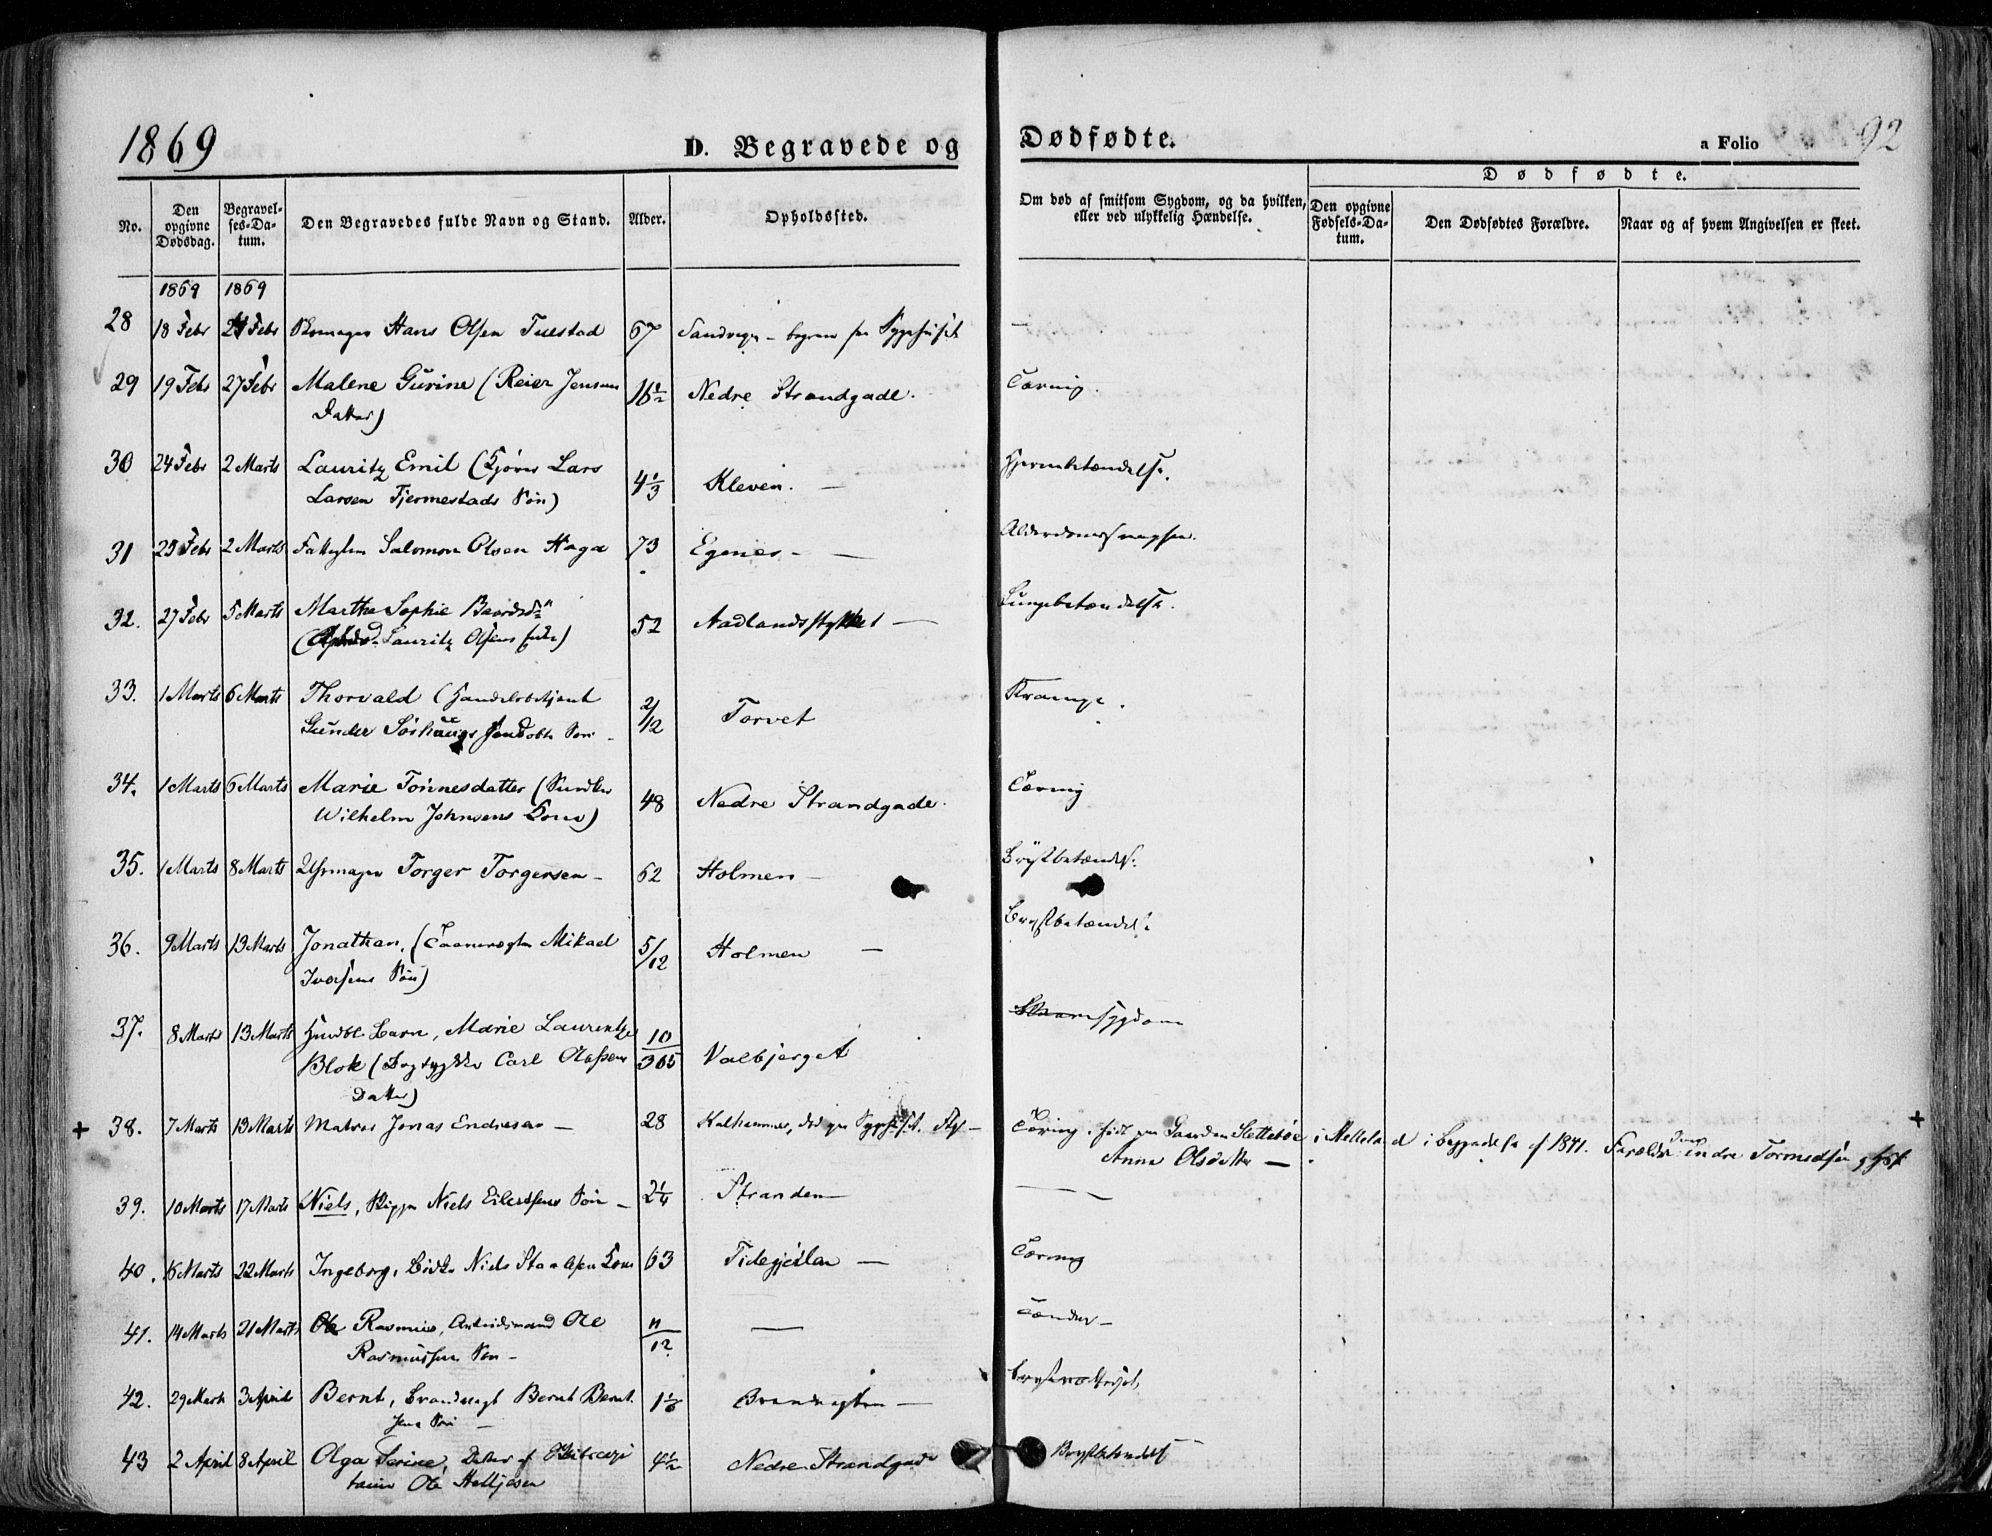 1869
D. Begravede og Dødfødte.
a Folio 92
Dødfødte.
No.
Den opgivne Dødsdag.
Begravelses-Datum.
Den Begravedes fulde Navn og Stand.
Alder.
Opholdssted.
Om død af smitsom Sygdom, og da hvilken, eller ved ulykkelig Hændelse.
Den opgivne Fødsels-Datum.
Den Dødfødtes Forældre.
Naar og af hvem Angivelsen er skeet.
1869 1869
28 18 Febr 24 Febr Skomager Hans Olsen Tuestad 67 Sandvigen - Sygehuset -
29 19 Febr 27 Febr Malene Gurine (Reier Jensens 16½ Nedre Strandgade. Tæring.
Datter)
30 24 Febr 2 Marts Lauritz Emil (Kjører Lars 4⅓ Kleven. - Hjernebetændelse.
Larsen Tjermestads Søn)
31 25 Febr 2 Marts Salomon Olsen Haga 73 Egenes - - Alderdomssvaghed.
32. 27 Febr 5 Marts Martha Sophie Baardsdtr 52 Aadlandsstykket - Lungebetændelse.
Lauritz Olsens Enke)
33. 1 Marts 6 Marts Thorvald (Handelsbetjent 2/12 Torvet Krampe.
Gunder Søn
34. 1 Marts 6 Marts Marie Tönnesdatter ( 48 Nedre Strandgade. Tæring
Wilhelm Johnsens Kone)
35. 1 Marts 8 Marts Uhrmager Torger Torgersen - 62 Holmen - Brystbetændelse
36. 9 Marts 13 Marts Jonathan, (Taarnvægter Mikael 5/12 Holmen - Brystbetændelse
Iversens Søn)
37. 8 Marts 13 Marts Hjemdbt Barn, Marie Laurentze 10/365 Valbjerget
Blok ( Carl Olsens
Datter)
+ 38. 7 Marts 13 Marts Matros Jonas Endresen - 28 Kalhammer, død paa Sygehuset. - Tæring, født paa Gaarden Slettebø i Helleland i Begyndelsen af 1841. Forældre Endre Tormodsen og Hst +
Anna Olsdatter -
39. 10 Marts 17 Marts Niels, Skipper Niels Eilertsens Søn - 2¼ Stranden - -
40. 16 Marts 22 Marts Ingeborg, Niels Kone 63 Tidegjeilen - Tæring
41. 14 Marts 21 Marts Rasmus, Arbeidsmand Ole 11/12 - Tænder -
Rasmussens Søn -
42. 29 Marts 3 April Bernt, Brandvagt Bernt Bernt- Brandvagten -
sens Søn -
43 2 April 8 April Olga Serine, Datter af Skibscapi- 4½ Nedre Strandgade Brystbetændelse
tain Ole